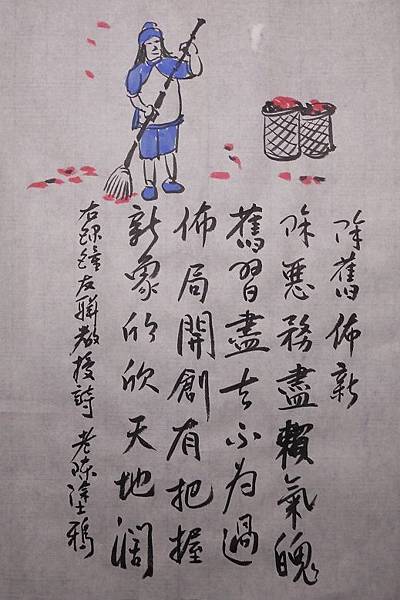 除舊佈新
除惡務盡賴氣魄
舊習盡去不為過
佈局開創有把握
新象欣欣天地闊
右錄鐘友聯教授詩 老陳塗鴉